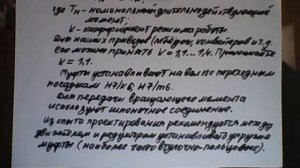 где Тн - номинальный длительнодействующий
момент;
К - коэффициент режима работы.
Для наших приводов (лебёдок, конвейеров и т.д.
его можно принять К = 1,1...1,4. Принимайте
К = 1,1.
Муфты устанавливают на вал по переходным
посадкам Н7/к6, Н7/m6.
Для передачи вращающего момента
используют шпоночное соединение.
Из опыта проектирования рекомендуется между
двигателем и редуктором устанавливать упругие
муфты (наиболее часто втулочно-пальцевые).